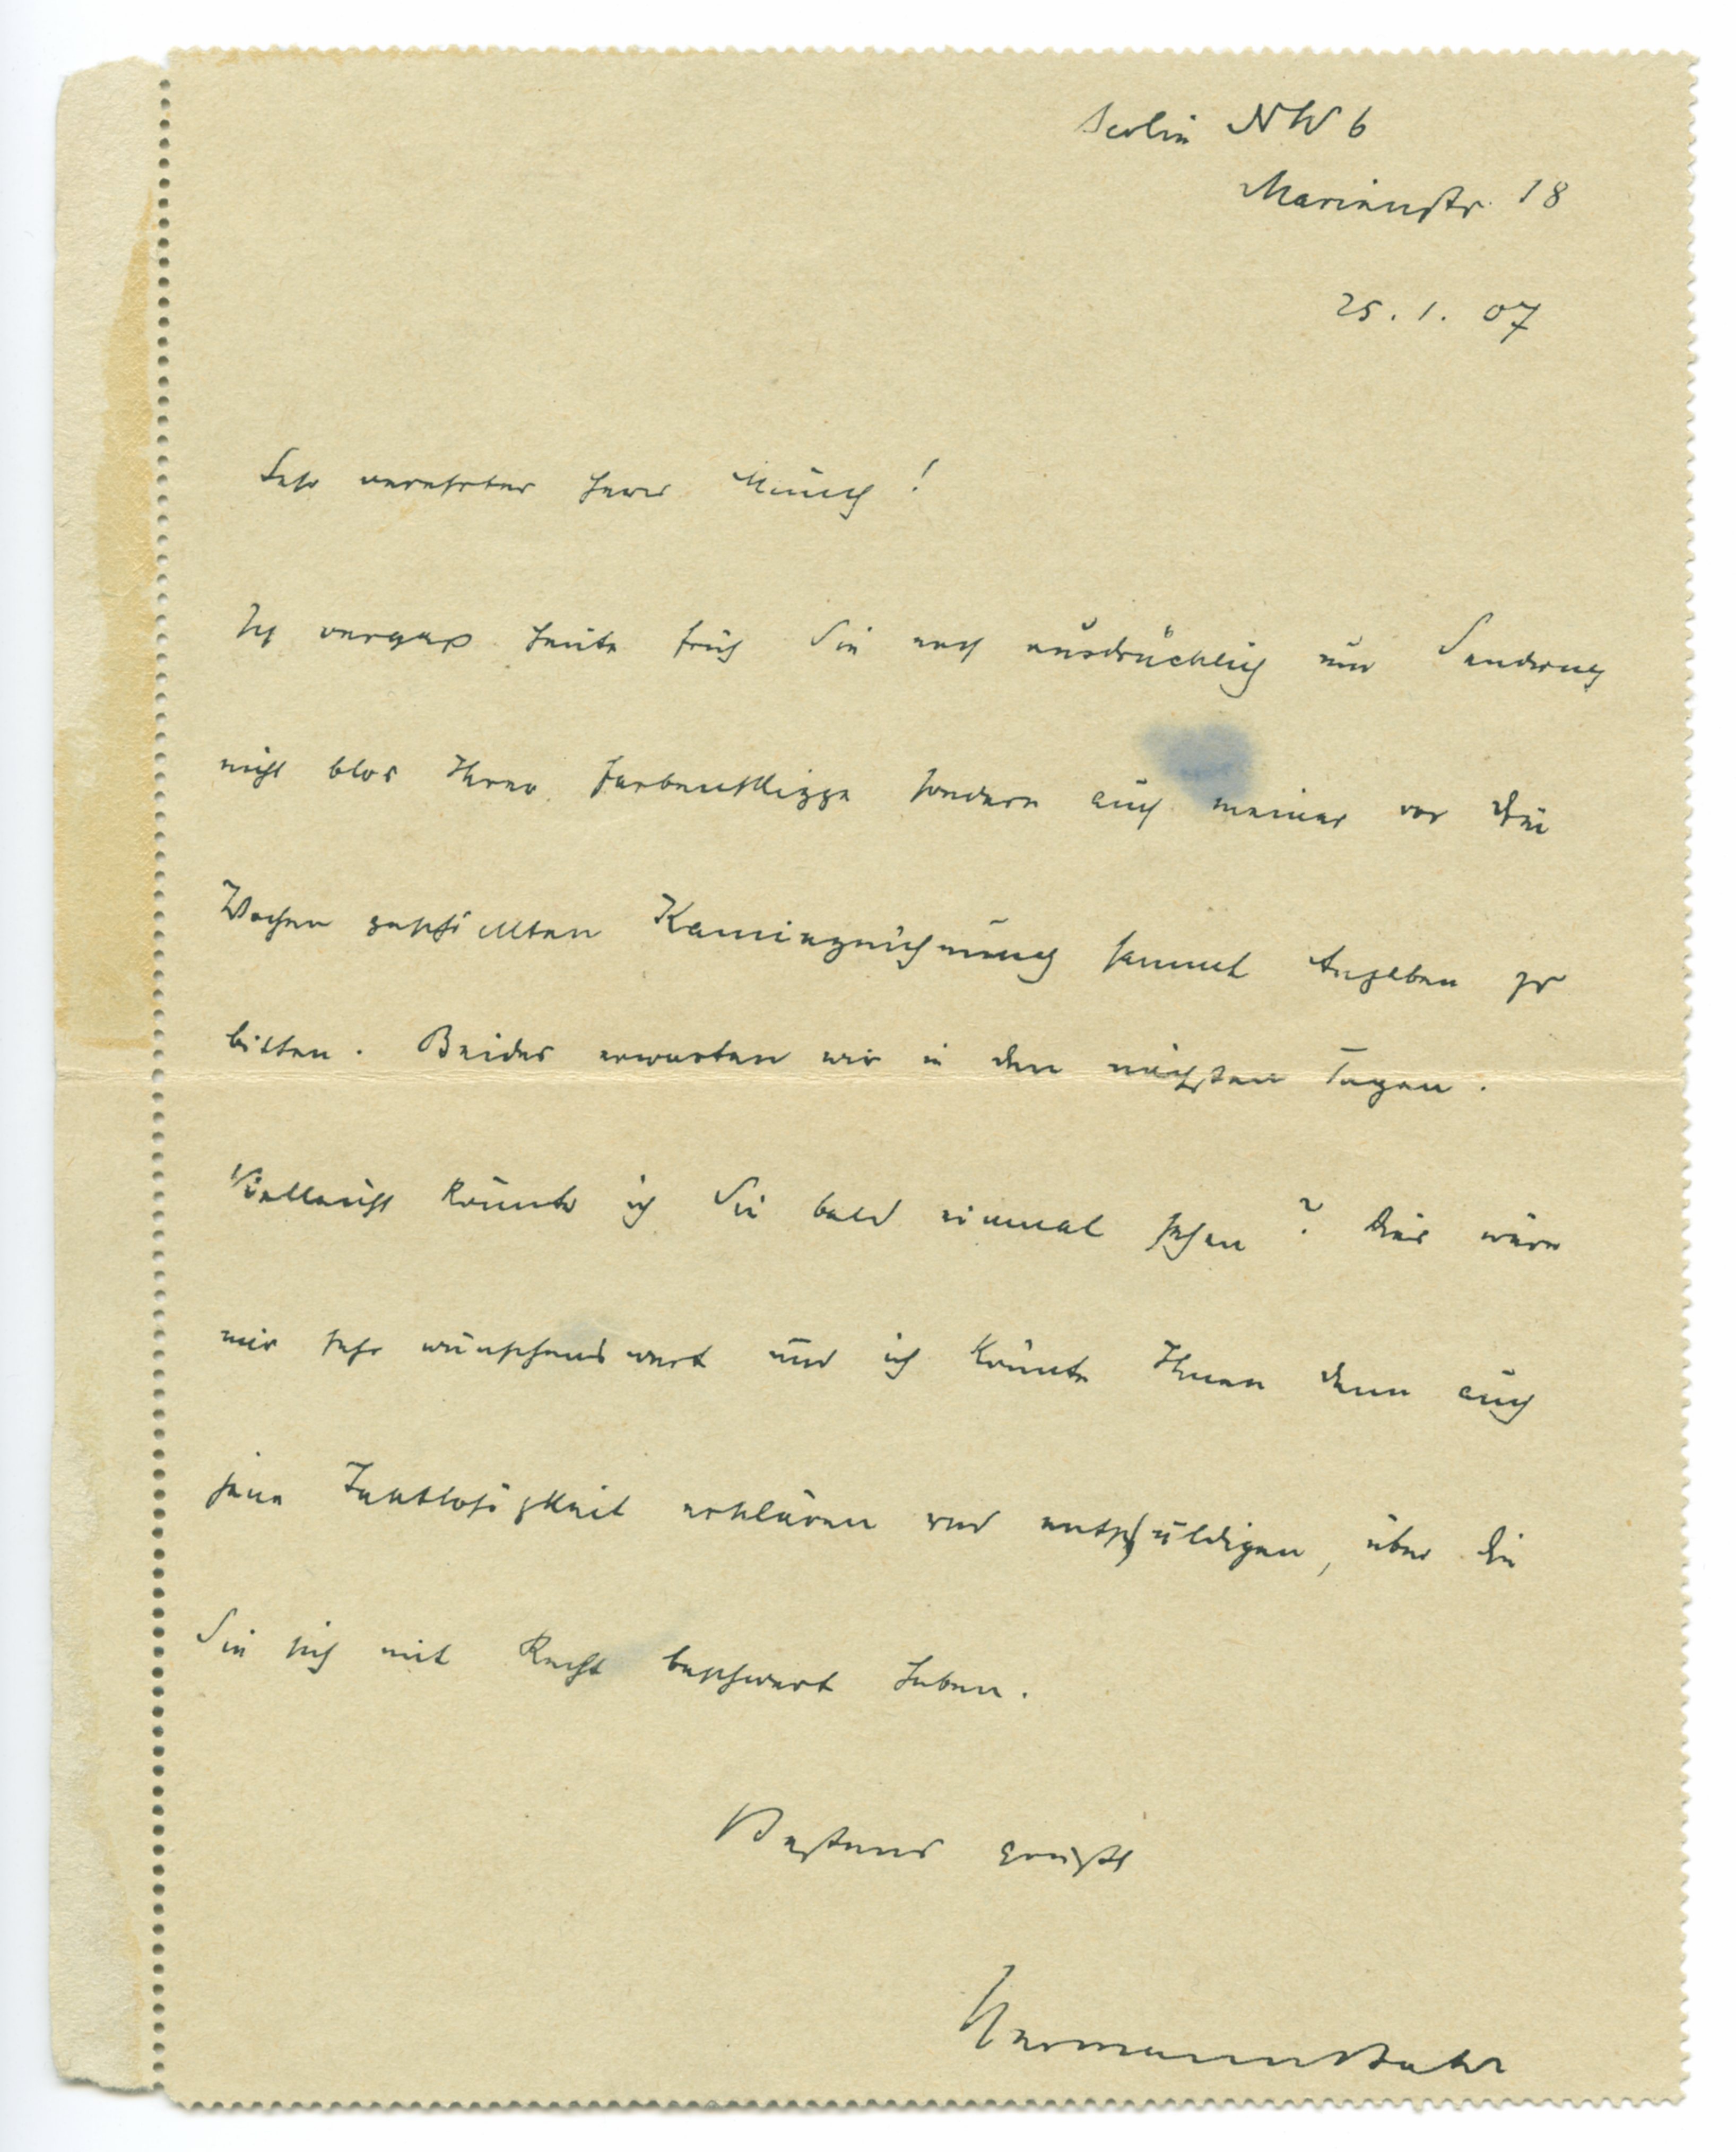 Berlin NW 6
Marienstr. 18
25. 1. 07
Sehr verehrter Herr Munch!
Ich vergaß heute früh Sie noch ausdrücklich um Sendung
nicht blos Ihrer Farbenskizze sondern auch meiner vor drei
Wochen geschickten Kaminzeichnung sammt Angaben zu
bitten. Beides erwarten wir in den nächsten Tagen.
Vielleicht könnte ich Sie bald einmal sehen? Dies wäre
mir sehr wünschenswert und ich könnte Ihnen dann auch
jene Taktlosigkeit erklären und entschuldigen, über die
Sie sich mit Recht beschwert haben.
Bestens grüßt
Hermann Bahr